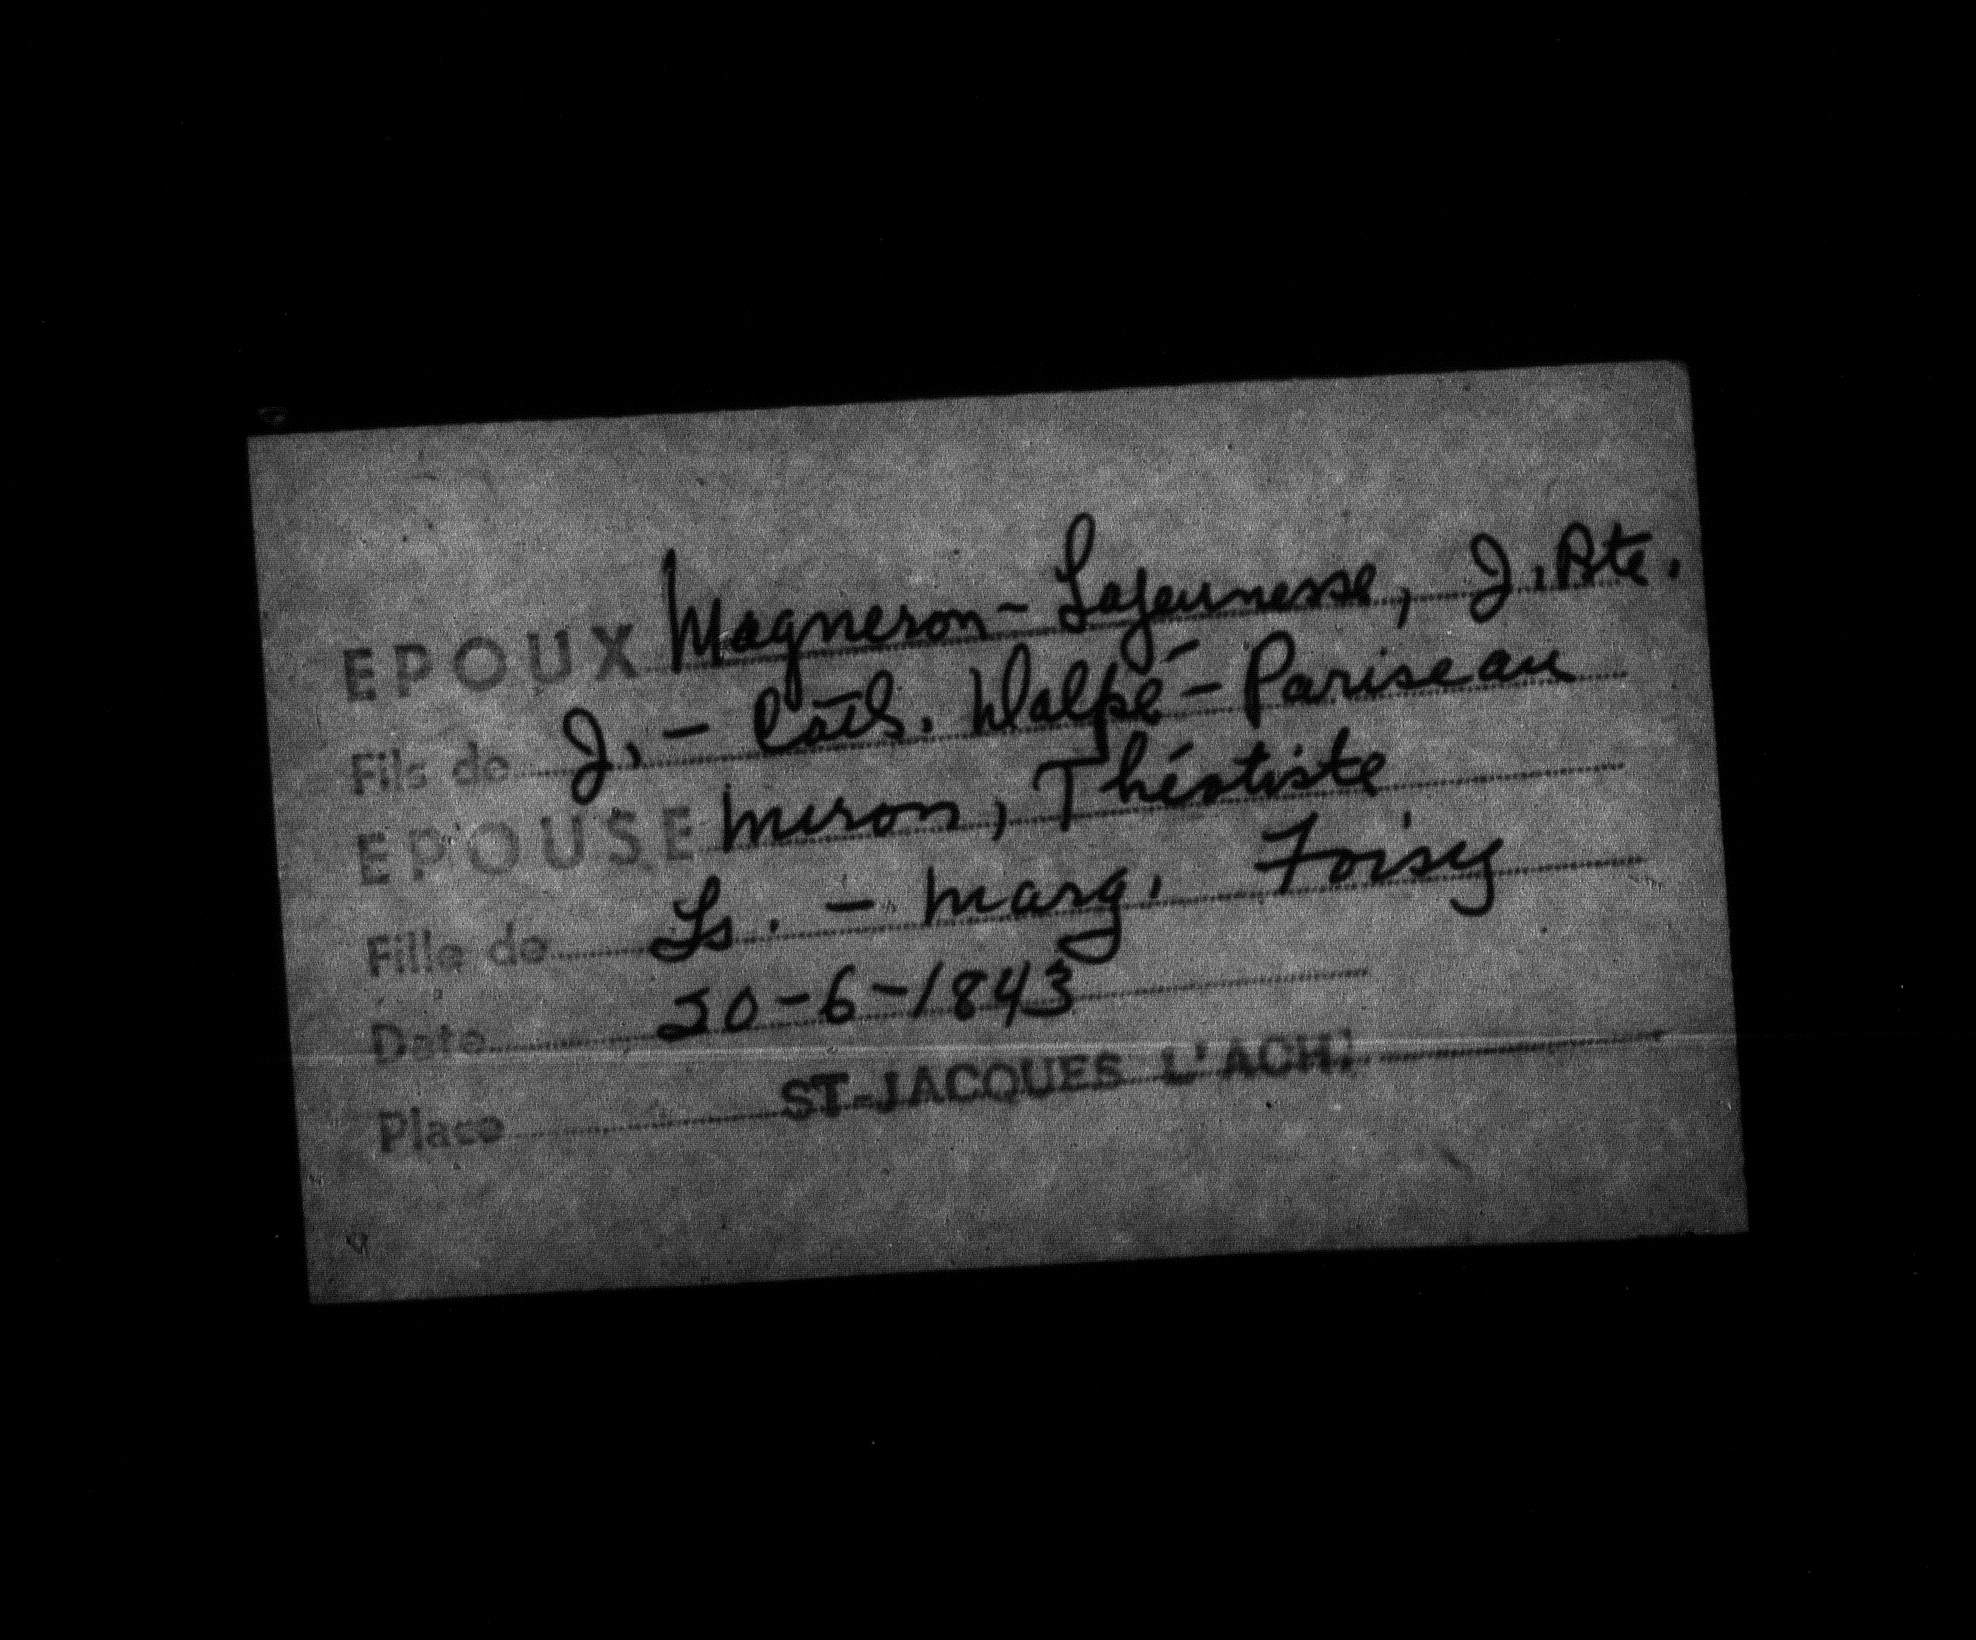 EPOUX Magneron-Lajeunesse, J.Bte.
Fils de J. - Cath. Dalpé-Pariseau
EPOUSE Miron, Théotiste
Fille de Ls. - Marg. Foisy
Date 20-6-1843
Place ST-JACQUES L'ACH.